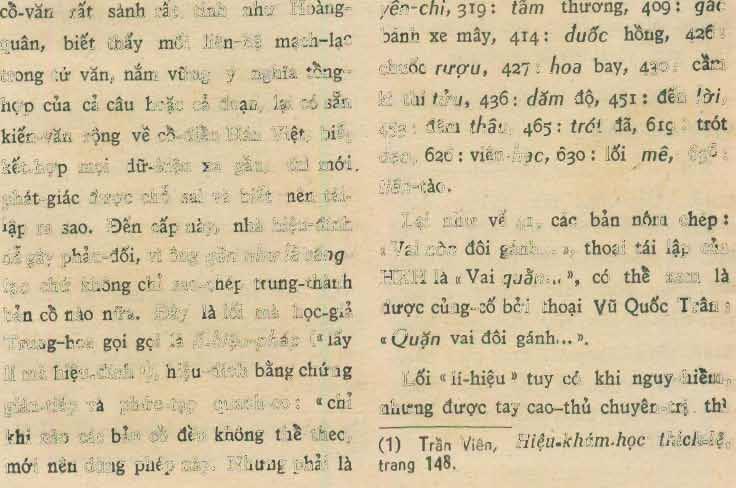 cồ-văn rất sành rất tinh như Hoàng-
quân, biết thấy mối liên-hệ mạch-lạc
trong tứ văn, nắm vững ý nghĩa tồng-
hợp của cả câu hoặc cả đoạn, lại có sẵn
kiến-văn rộng về cồ-điền Hán Việt, biết
kết-hợp mọi dữ-kiện xa gần, thì mới
phát-giác được chỗ sai và biết nên tái-
lập ra sao. Đến cấp này, nhà hiệu-đính
dễ gây phản-đối, vì ông gần như là sáng-
tạo chứ không chỉ sao-chép trung-thành
bản cồ nào nữa. Đây là lối mà học-giả
Trung-hoa gọi gọi là («lấy
lí mà hiệu-đính»), hiệu-đính bằng chứng
gián-tiếp và phức-tạp quanh-co: «chỉ
khi nào các bản cồ đều không thề theo,
mới nên dùng phép này. Nhưng phải là
yên-chi, 319: tầm thương, 409: gác
bánh xe mây, 414: đuốc hồng, 426:
chuốc rượu, 427: hoa bay, 430: cầm
kì thi tửu, 436: dăm độ, 451: đến lời,
453: đêm thâu, 465: trót đã, 619: trót
626: viên-hạc, 630: lối mê,
Lại như vế 41, các bản nôm chép:
«Vai còn đôi gánh...», thoại tái lập của
HXH là «Vai quằn...», có thề xem là
được củng-cố bởi thoại Vũ Quốc Trân:
«Quặn vai đôi gánh...».
Lối «lí-hiệu» tuy có khi nguy hiềm,
nhưng được tay cao-thủ chuyên-trị thì
(1) Trần Viên, Hiệu-khám-học thích-lệ,
trang 148.